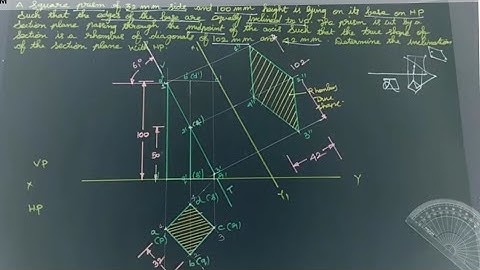 A Square prism of 32 mm side and 100 mm height is lying on its base on HP
Such that the edges of the base are equally inclined to VP. The prism is cut by a
section plane passing through the midpoint of the axis such that the true shape of
section is a rhombus of diagonals of 102 mm and 42 mm. Determine the inclinations
of the section plane with HP.
61°
102
Rhombus
True
shape
4''
3''
100
50
42
VP
X
Y
HP
T
Y1
a
(p)
d (s)
c (r)
3
b (q)
32